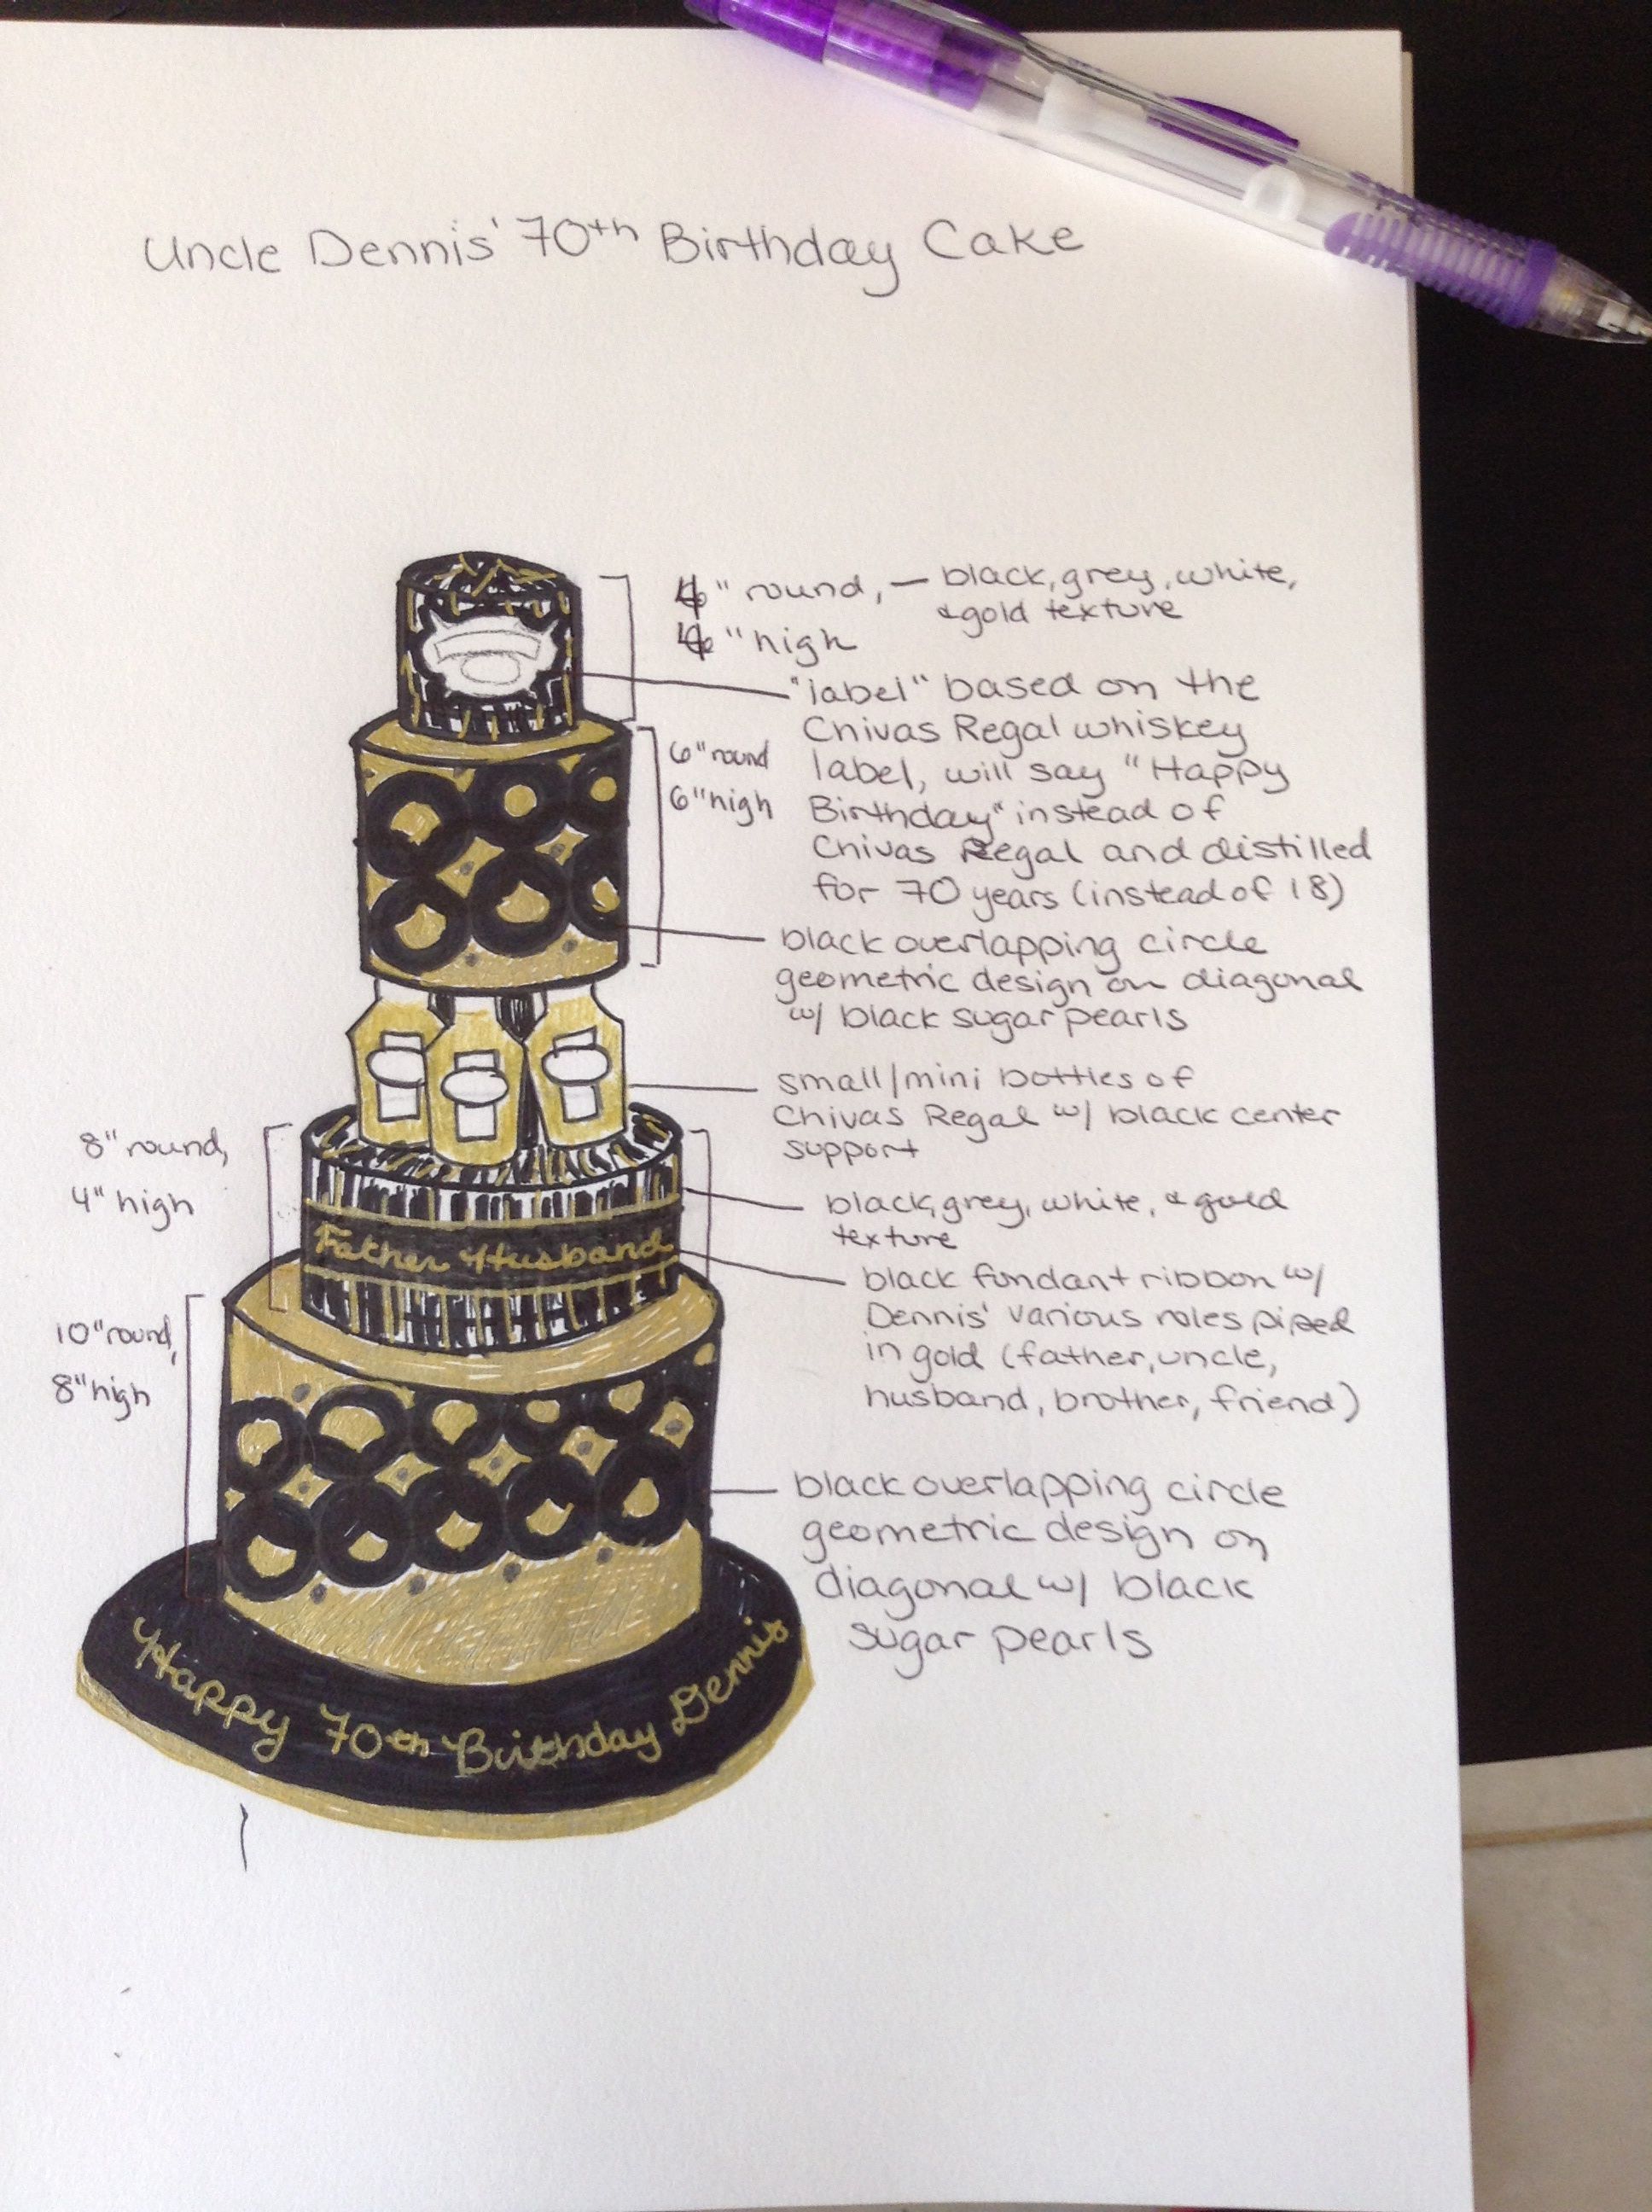 Uncle Dennis' 70th Birthday Cake
4" round, — black, grey, white,
& gold texture
4" high
"label" based on the
Chivas Regal whiskey
label, will say "Happy
Birthday" instead of
Chivas Regal and distilled
for 70 years (instead of 18)
6" round
6" high
black overlapping circle
geometric design on diagonal
w/ black sugar pearls
small/mini bottles of
Chivas Regal w/ black center
support
8" round,
4" high
black, grey, white, & gold
texture
Father Husband
black fondant ribbon w/
Dennis' various roles piped
in gold (father, uncle,
husband, brother, friend)
10" round,
8" high
black overlapping circle
geometric design on
diagonal w/ black
sugar pearls
Happy 70th Birthday Dennis